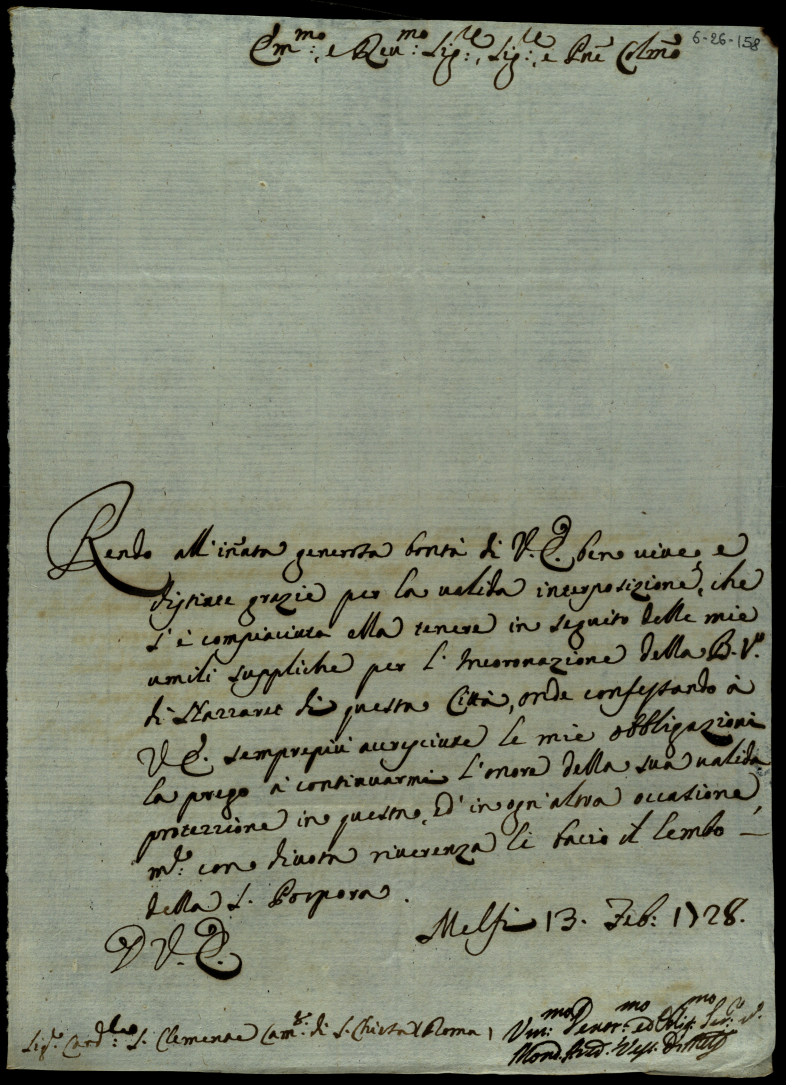 6-26-158
Em.mo: e Reu.mo: Sig.re:, Sig.re: e Pñe Colmõ
Rendo all'iñata generosa bontà di V.E. ben viue, e
distinte grazie per la ualida interposizione, che
s'è compiaciuta ella tenere in seguito delle mie
umili suppliche per l'Incoronazione della B.V.e
di Nazzaret di questa Città, onde confessando à
V.E. semprepiù accresciute le mie obbligazioni
la prego à continuarmi l'onore della sua ualida
protezzione in questa, ed' in ogn'altra occasione,
m.e: con diuota riuerenza li bacio il lembo —
della S. Porpora.
D V.E. Melfi 13. Feb: 1728.
Sig.r Card.le: S. Clemente Cam.: di S. Chiesa (Roma) Um.mo: Deuot.mo: ed Obblig.mo Ser.e
Mond. Ved. di Melfi